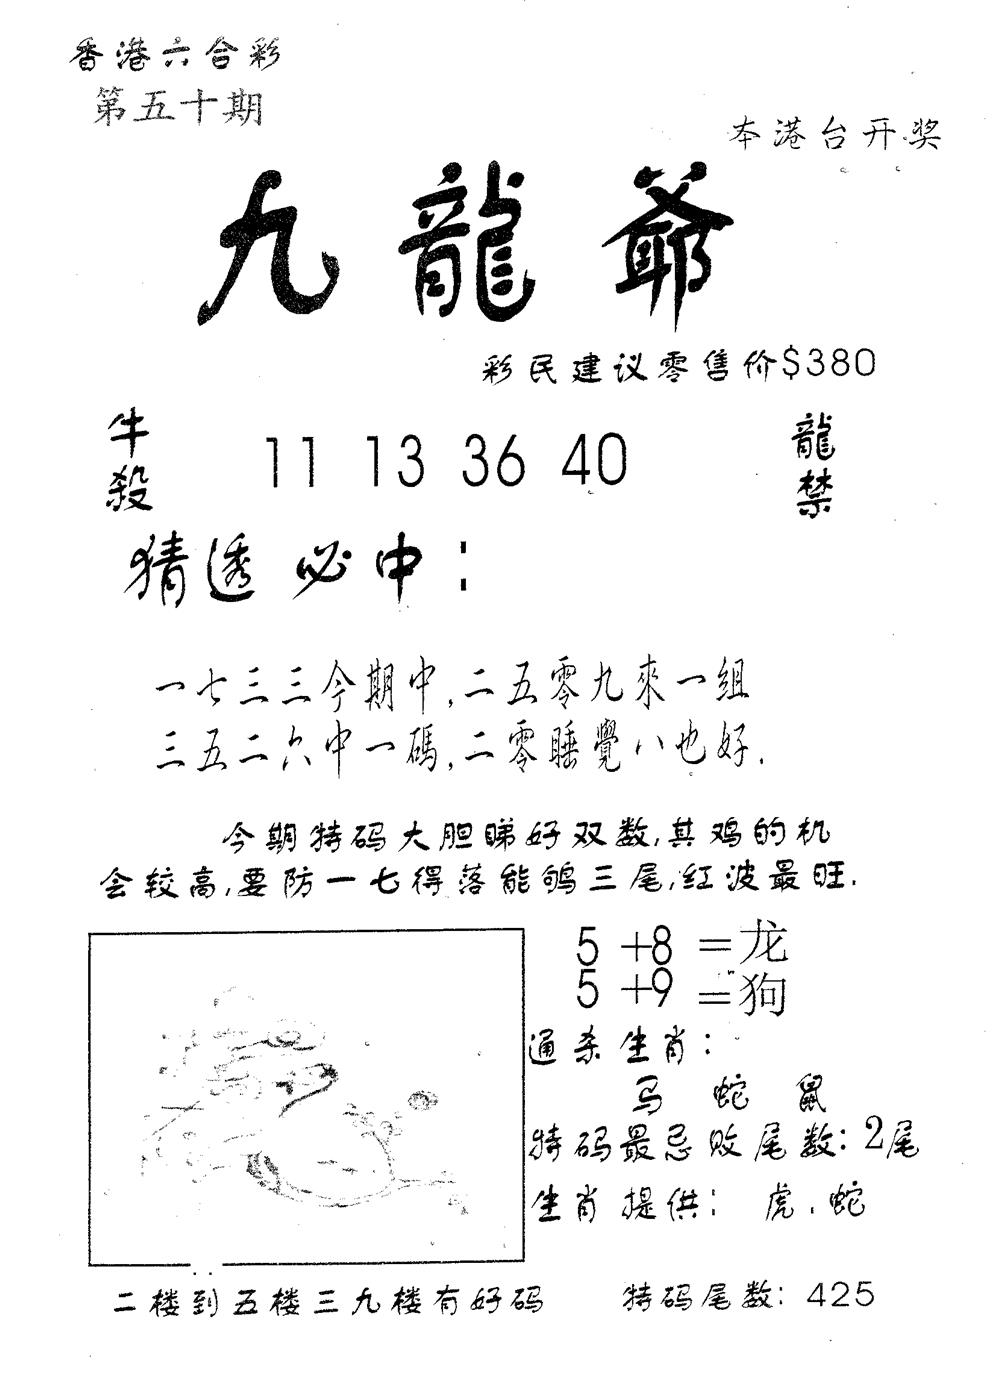 香港六合彩
第五十期
本港台开奖
九龍爺
彩民建议零售价$380
牛殺 11 13 36 40 龍禁
猜透必中：
一七三三今期中,二五零九來一組
三五二六中一碼,二零睡覺八也好.
今期特码大胆睇好双数,其鸡的机
会较高,要防一七得落能鸲三尾,红波最旺.
5+8=龙
5+9=狗
通杀生肖：
马 蛇 鼠
特码最忌败尾数：2尾
生肖提供： 虎.蛇
二楼到五楼三九楼有好码 特码尾数：425